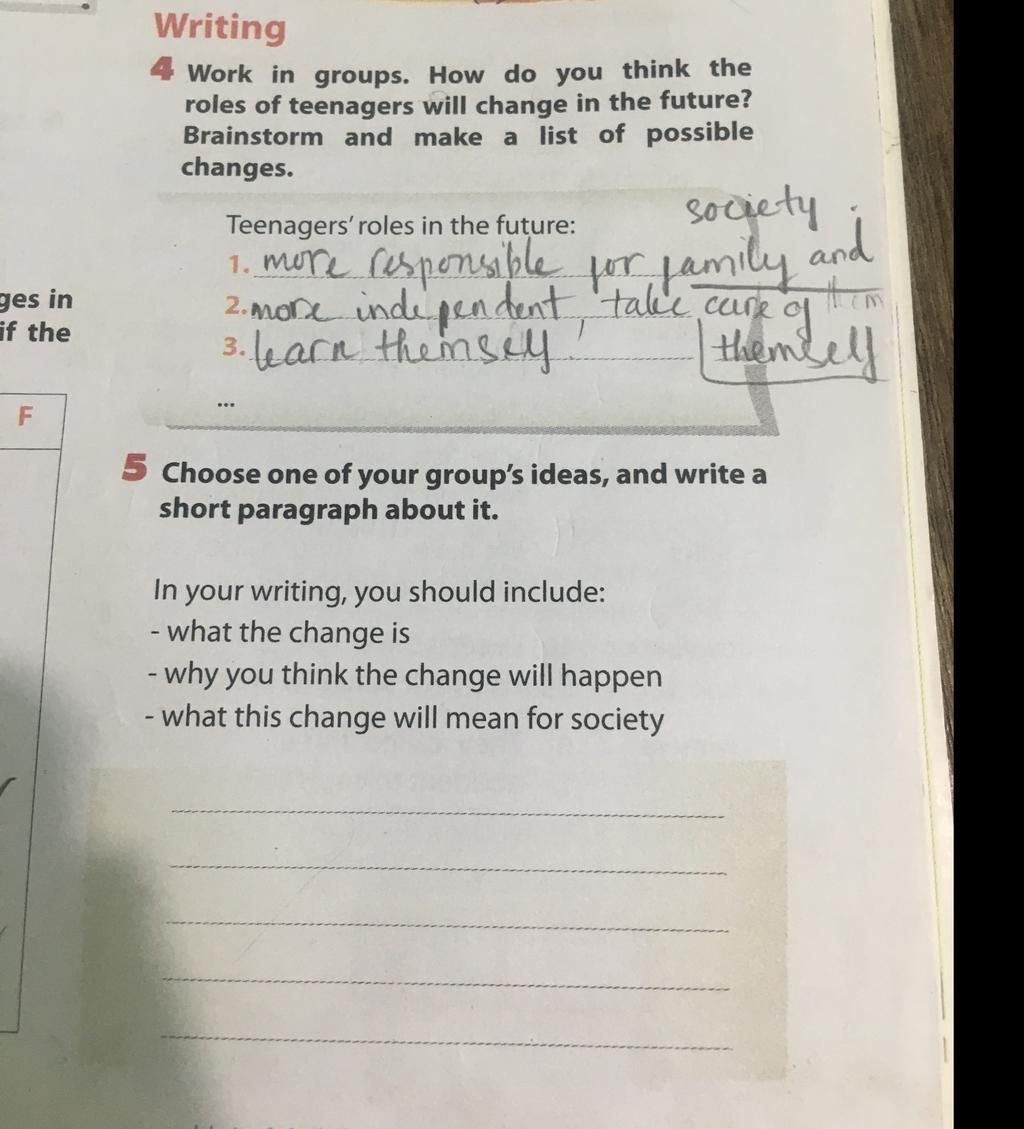 Writing
4 Work in groups. How do you think the
roles of teenagers will change in the future?
Brainstorm and make a list of possible
changes.
society.
Teenagers' roles in the future:
1. more responsible for family and
ges in
2. more independent, take care of them
if the
3. learn themself! themself
...
F
5 Choose one of your group's ideas, and write a
short paragraph about it.
In your writing, you should include:
- what the change is
- why you think the change will happen
- what this change will mean for society